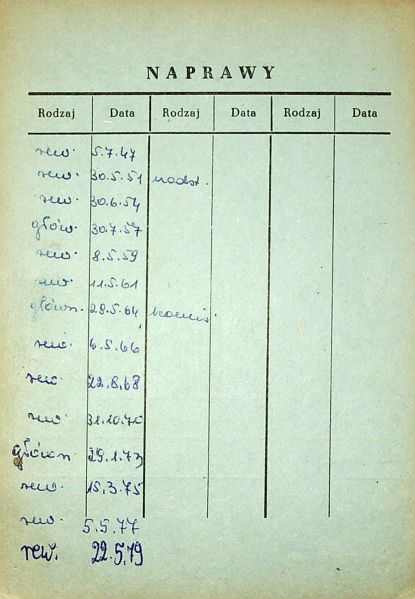 NAPRAWY
Rodzaj Data Rodzaj Data Rodzaj Data
rew. 5.7.47
rew. 30.5.51 nadst.
rew. 30.6.54
głów. 30.7.57
rew. 8.5.59
rew. 11.5.61
główn. 28.5.64 komis.
rew. 6.5.66
rew. 22.8.68
rew. 31.10.70
główn. 29.1.73
rew. 15.3.75
rew. 5.5.77
rew. 22.5.79